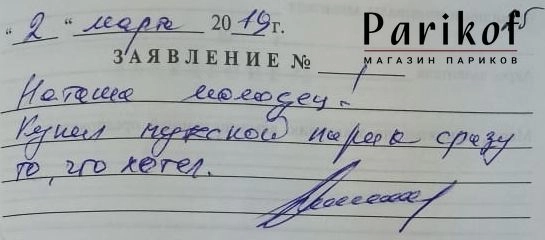 "2" марта 2019 г.
Parikof
МАГАЗИН ПАРИКОВ
ЗАЯВЛЕНИЕ №
Наташа молодец!
Купил мужской парик сразу
то, что хотел.